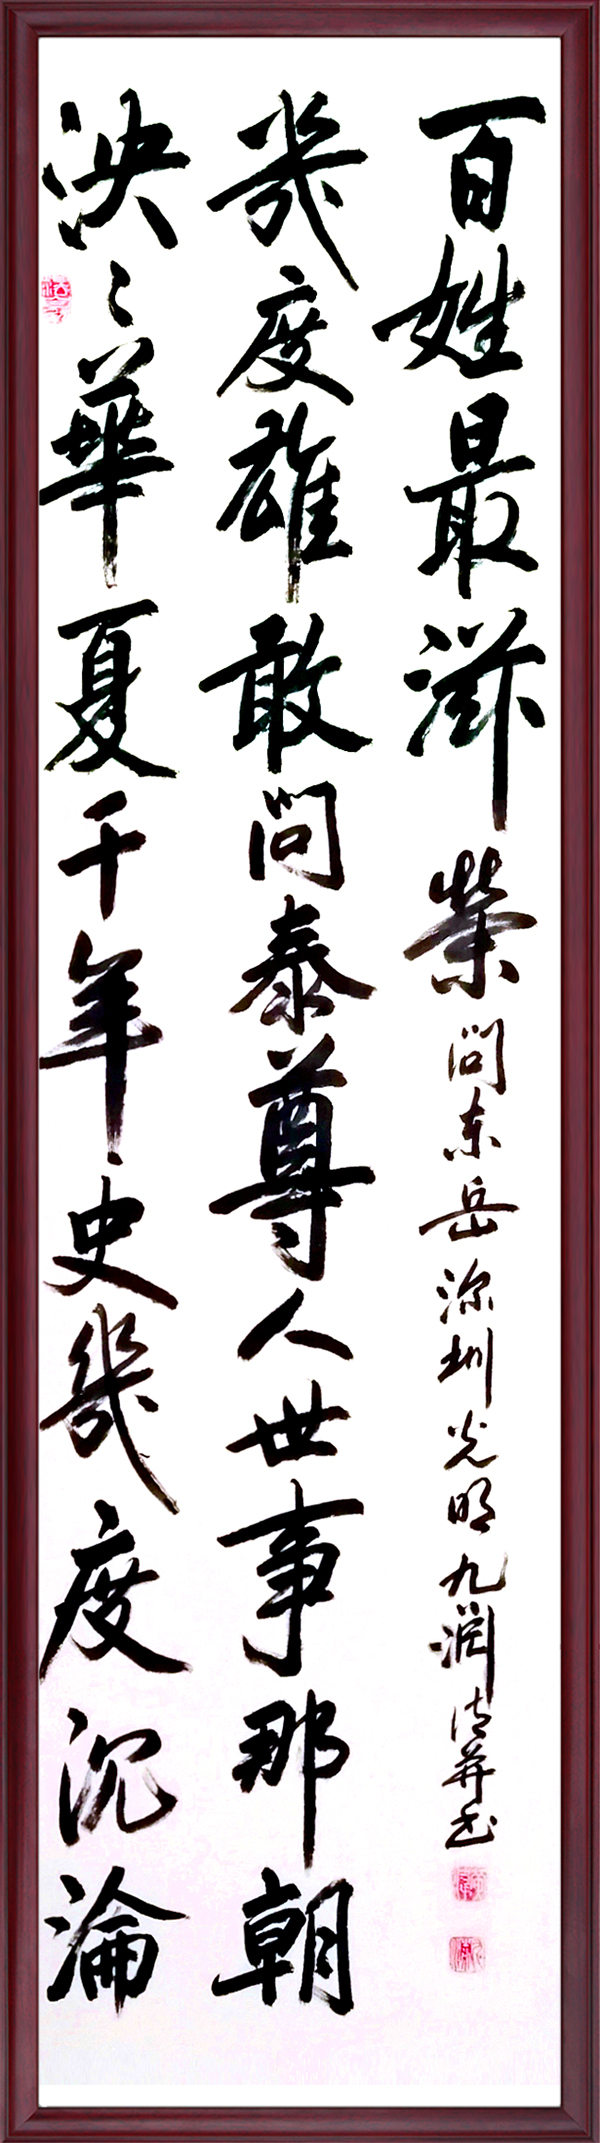 泱〻華夏千年史幾度沉淪
幾度雄敢問泰尊人世事那朝
百姓最滋榮 問东岳 深圳光明九潤诗并书